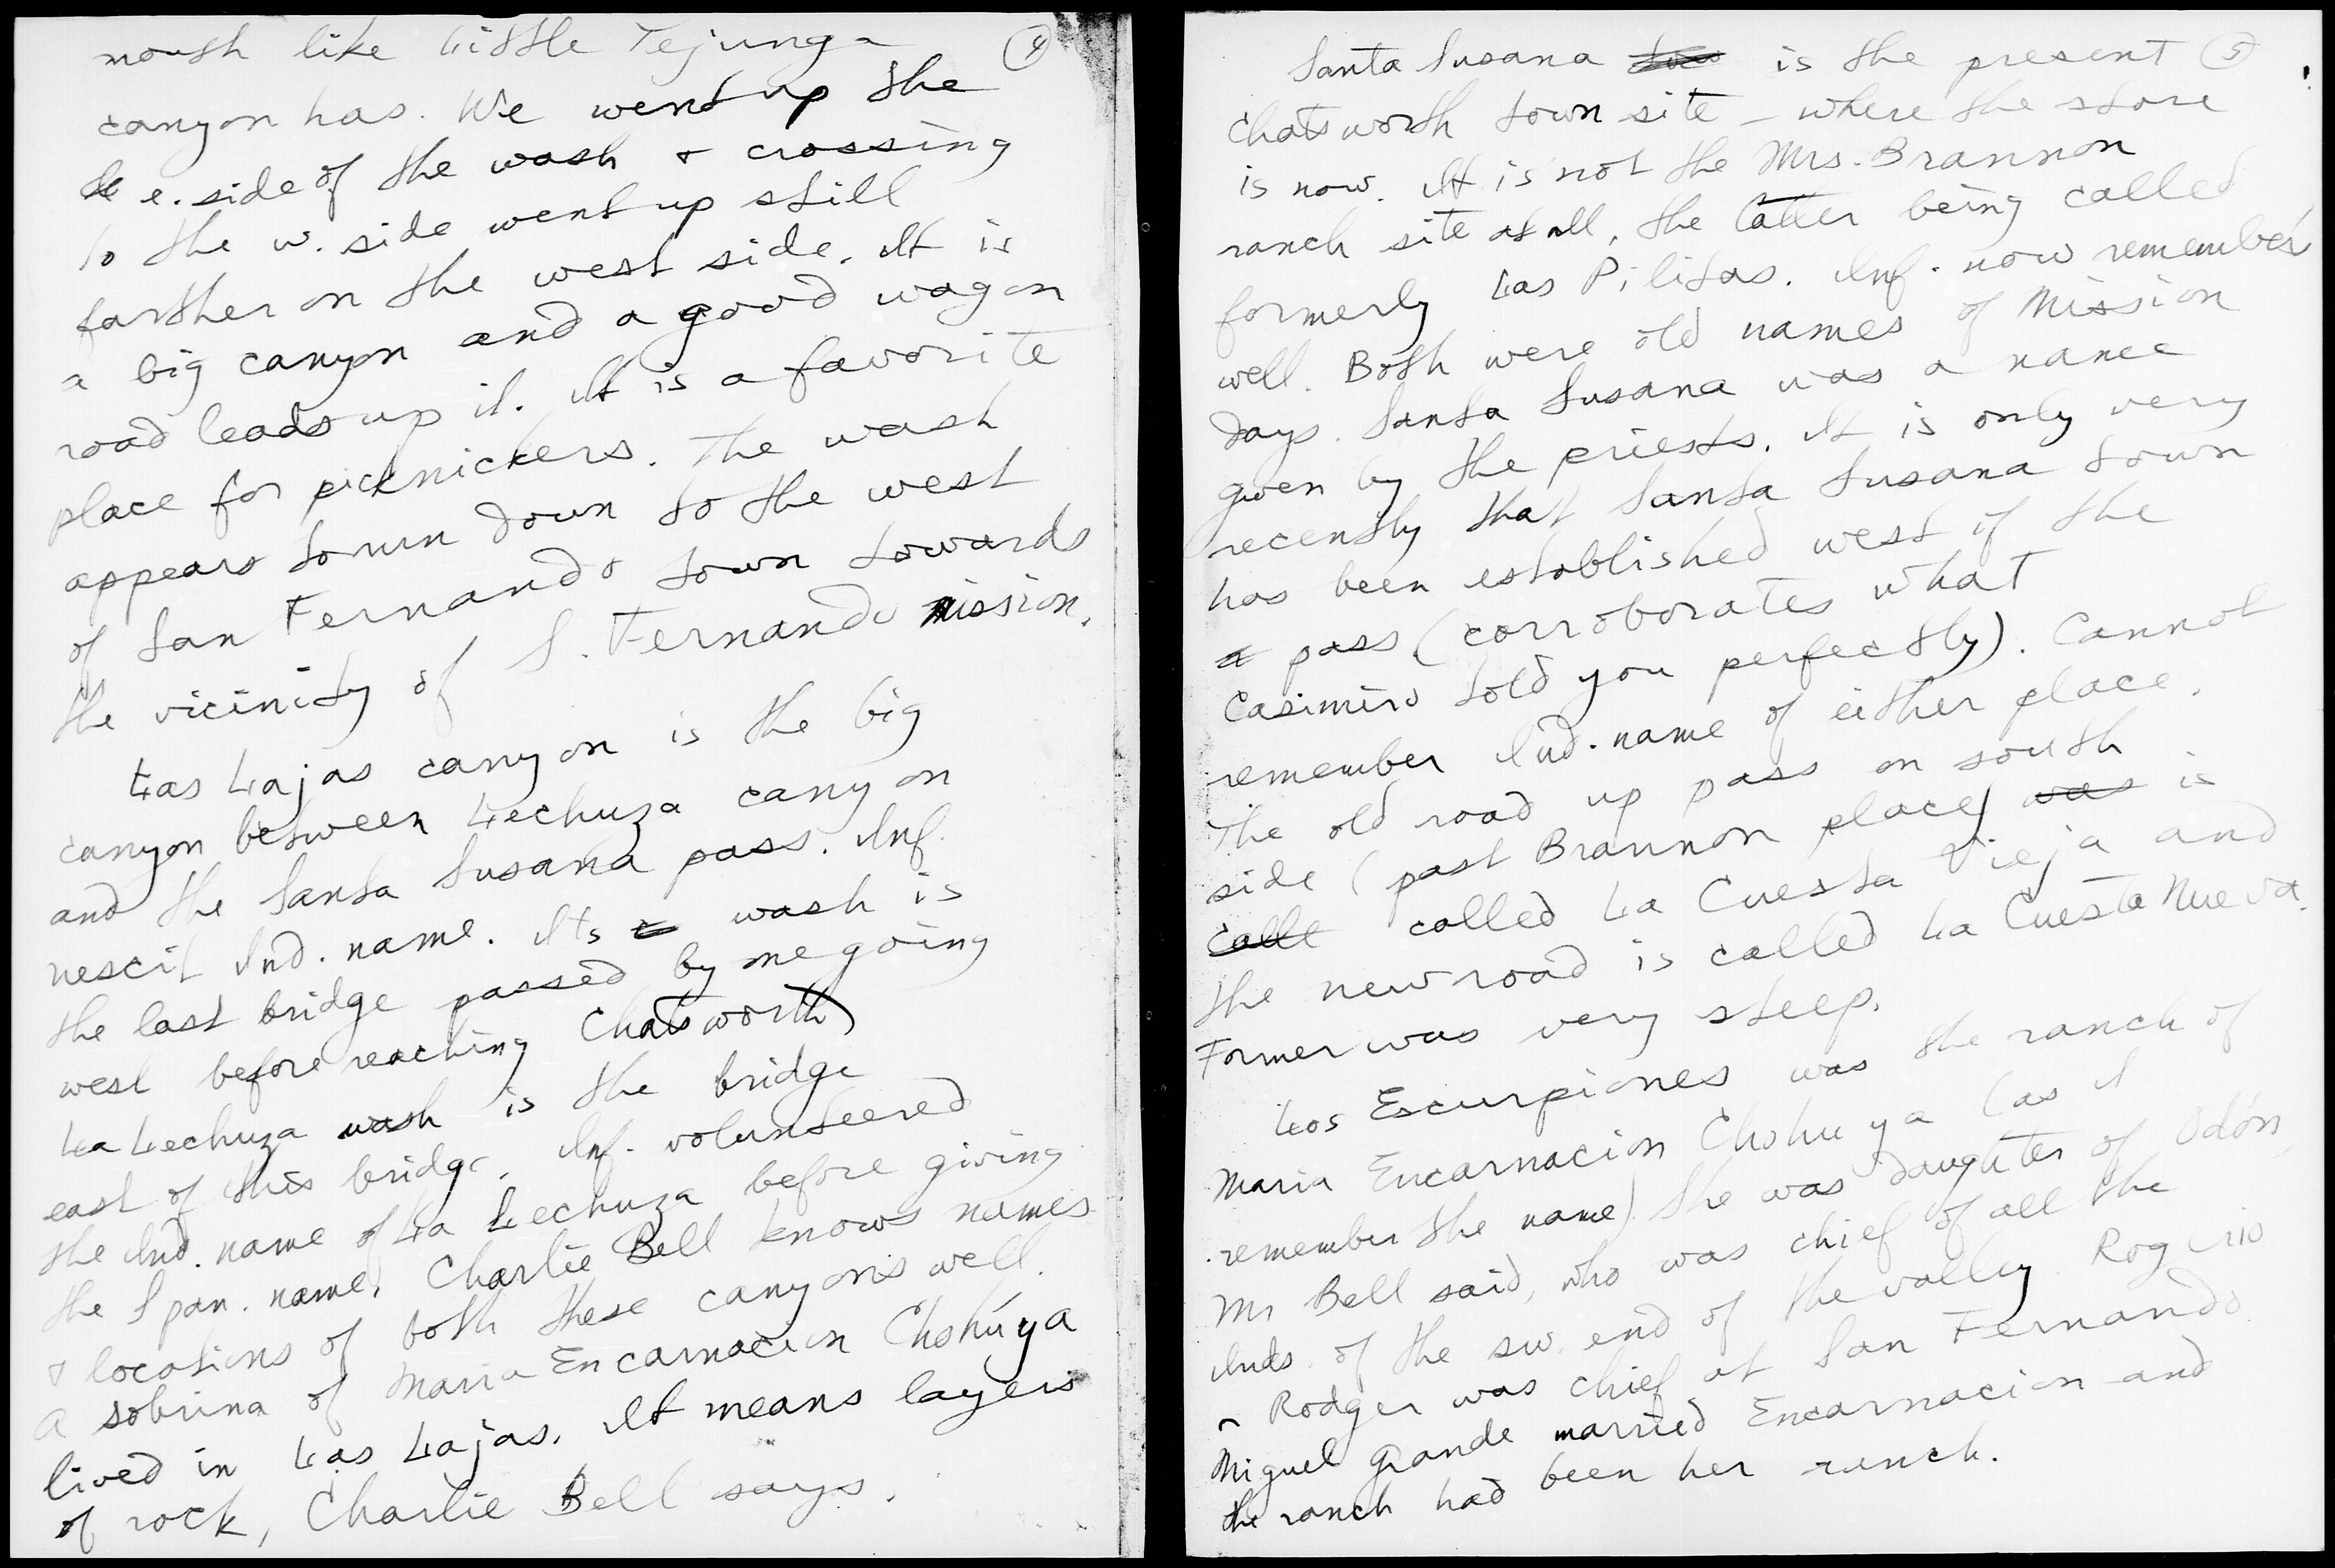 mouth like Little Tejunga ④
canyon has. We went up the
e. side of the wash & crossing
to the w. side went up still
farther on the west side. It is
a big canyon and a good wagon
road leads up it. It is a favorite
place for picknickers. The wash
appears to run down to the west
of San Fernando town towards
the vicinity of S. Fernando mission.
Las Lajas canyon is the big
canyon between Lechuza canyon
and the Santa Susana pass. Inf.
nescit Ind. name. Its wash is
the last bridge passed by me going
west before reaching Chatsworth)
La Lechuza wash is the bridge
east of this bridge. Inf. volunteered
the Ind. name of La Lechuza before giving
the Span. name. Charlie Bell knows names
& locations of both these canyons well.
A sobrina of Maria Encarnacion Chohúya
lived in Las Lajas. It means layers
of rock, Charlie Bell says.
Santa Susana is the present ⑤
Chatsworth town site - where the store
is now. It is not the Mrs. Brannon
ranch site at all, the latter being called
formerly Las Pilitas. Inf. now remembers
well. Both were old names of Mission
days. Santa Susana was a name
given by the priests. It is only very
recently that Santa Susana town
has been established west of the
pass (corroborates what
Casimiro told you perfectly). Cannot
remember Ind. name of either place.
The old road up pass on south
side (past Brannon place) was is
calle called La Cuesta Vieja and
the new road is called La Cuesta Nueva.
Former was very steep.
Los Escurpiones was the ranch of
Maria Encarnacion Chohuya (as I
remember the name) She was daughter of Odón,
Mr Bell said, who was chief of all the
Inds. of the sw. end of the valley. Rogerio
Rodger was chief at San Fernando.
Miguel Grande married Encarnacion and
the ranch had been her ranch.